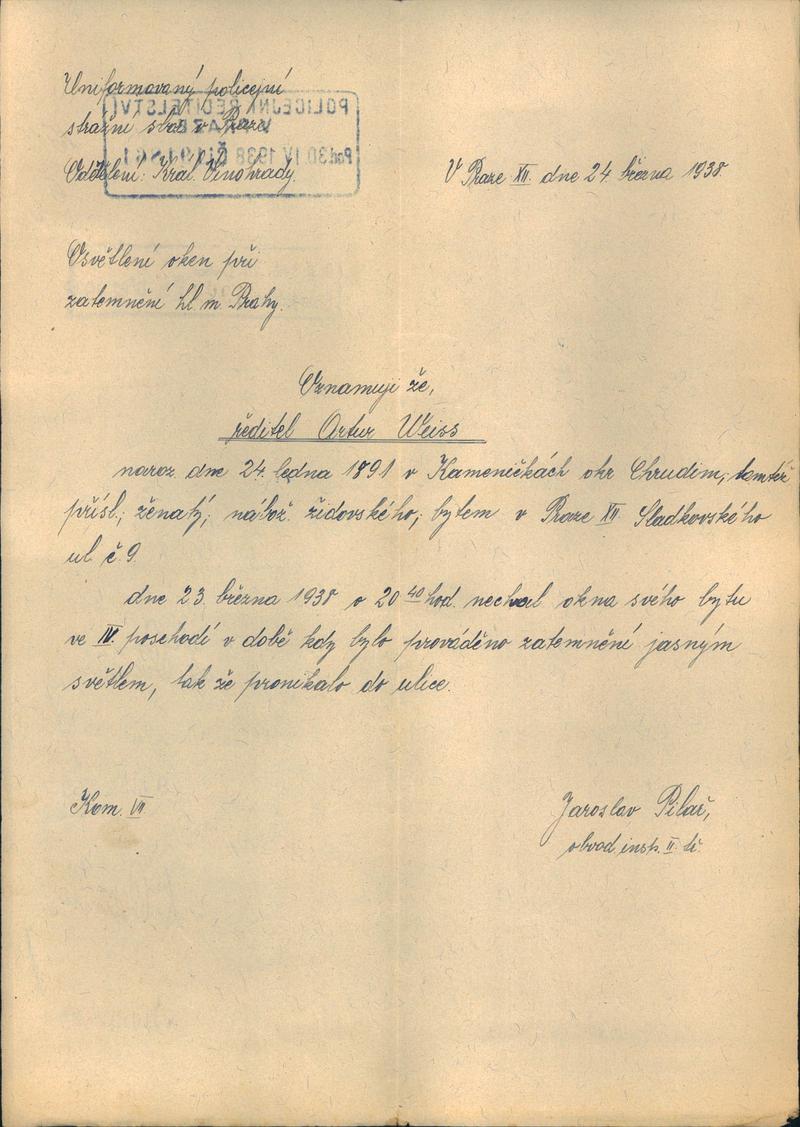 Uniformovaný policejní
stražní sbor v Praze
Oddělení: Král. Vinohrady.
POLICEJNÍ ŘEDITELSTVÍ
V PRAZE
Pod 30 IV 1938
V Praze XII. dne 24. března 1938
Osvětlení oken při
zatemnění hl. m. Prahy.
Oznamuji že,
ředitel Artur Weiss
naroz. dne 24. ledna 1891 v Kameničkách okr. Chrudim, tamtéž
přísl.; ženatý; nábož. židovského; bytem v Praze XII. Sladkovského
ul. č. 9.
dne 23. března 1938 o 20 40 hod. nechal okna svého bytu
ve IV. poschodí v době kdy bylo prováděno zatemnění jasným
světlem, tak že pronikalo do ulice.
Kom. VII.
Jaroslav Pilař,
obvod. insp. II. tř.